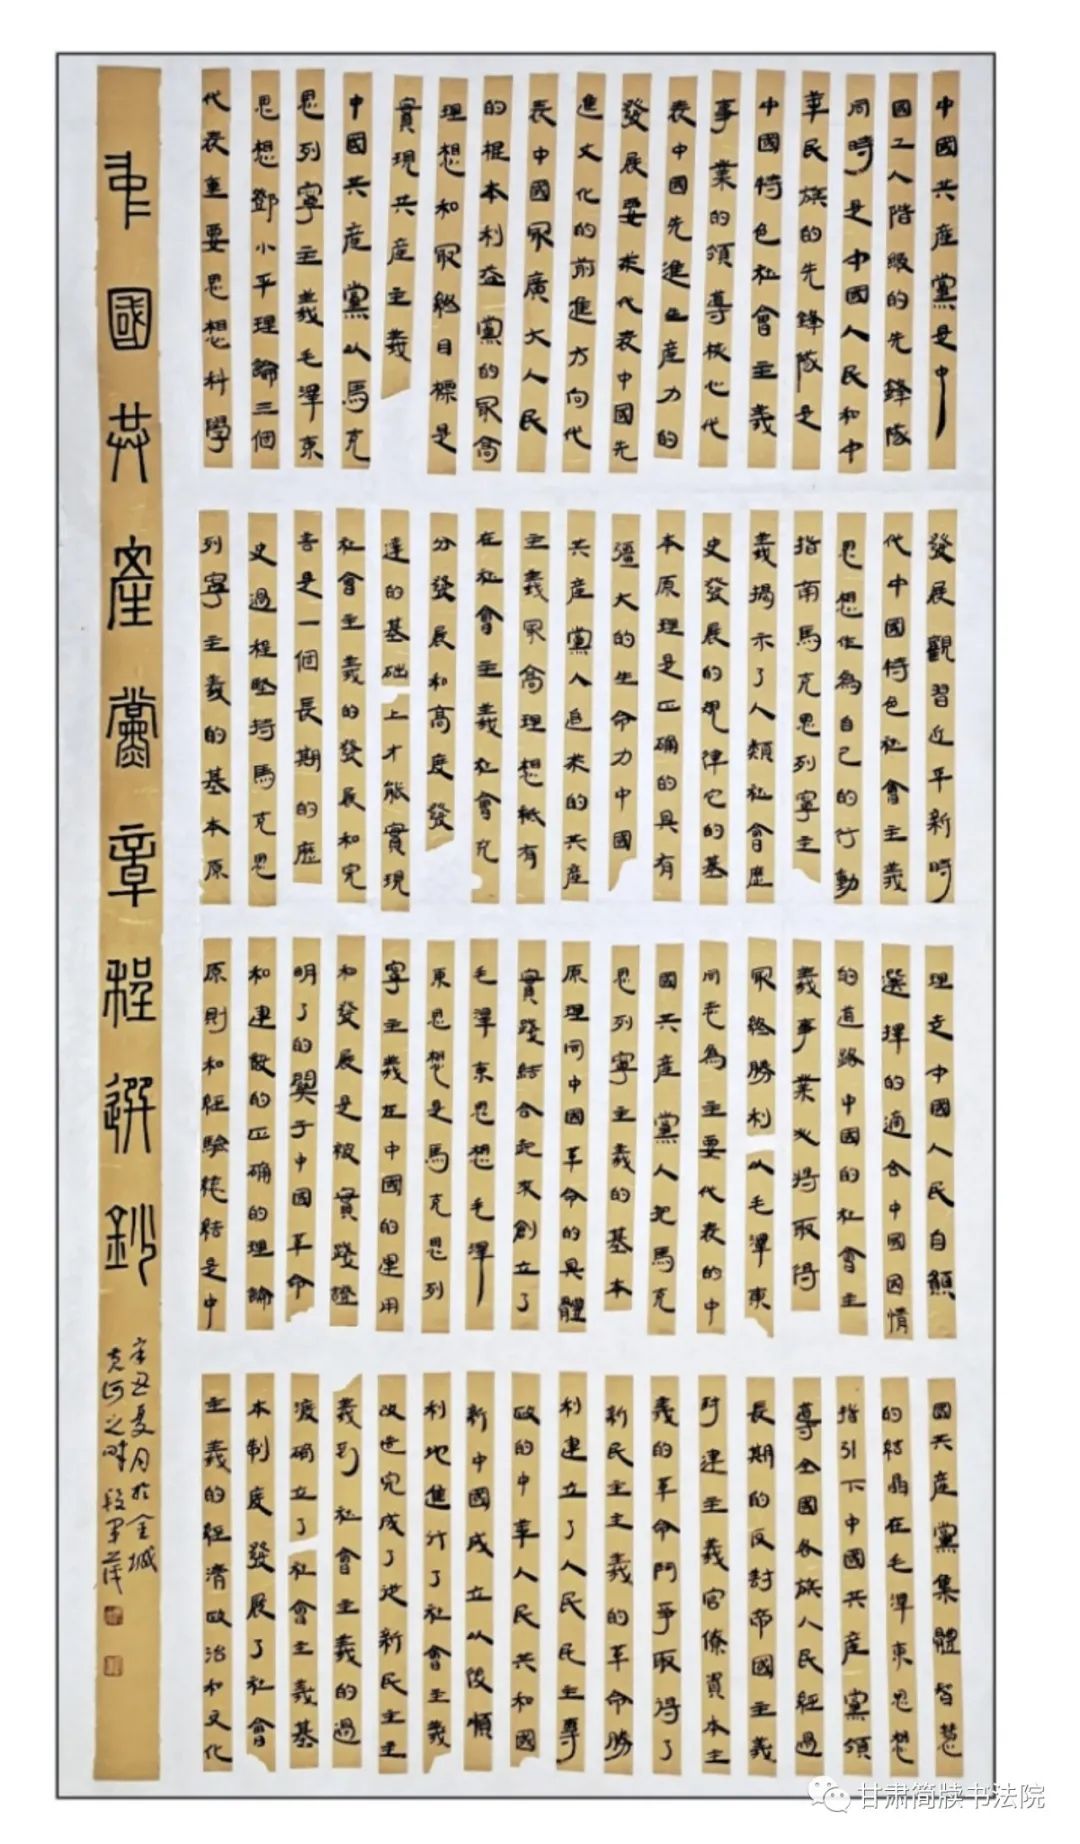 中國共產黨是中
國工人階級的先鋒隊
同時是中國人民和中
華民族的先鋒隊是
中國特色社會主義
事業的領導核心代
表中國先進生產力的
發展要求代表中國先
進文化的前進方向代
表中國最廣大人民
的根本利益黨的最高
理想和最終目標是
實現共產主義
中國共產黨以馬克
思列寧主義毛澤東
思想鄧小平理論三個
代表重要思想科學
發展觀習近平新時
代中國特色社會主義
思想作為自己的行動
指南馬克思列寧主
義揭示了人類社會歷
史發展的規律它的基
本原理是正确的具有
強大的生命力中國
共產黨人追求的共產
主義最高理想祇有
在社會主義社會充
分發展和高度發
達的基础上才能實現
社會主義的發展和完
善是一個長期的歷
史過程堅持馬克思
列寧主義的基本原
理走中國人民自願
選擇的適合中國國情
的道路中國的社會主
義事業必將取得
最終勝利以毛澤東
同志為主要代表的中
國共產黨人把馬克
思列寧主義的基本
原理同中國革命的具體
實踐結合起來創立了
毛澤東思想毛澤
東思想是馬克思列
寧主義在中國的運用
和發展是被實踐證
明了的關于中國革命
和建設的正确的理論
原則和經驗總結是中
國共產黨集體智慧
的結晶在毛澤東思想
指引下中國共產黨領
導全國各族人民經過
長期的反對帝國主義
封建主義官僚資本主
義的革命鬥爭取得了
新民主主義的革命勝
利建立了人民民主專
政的中華人民共和國
新中國成立以後順
利地進行了社會主義
改造完成了從新民主主
義到社會主義的過
渡确立了社會主義基
本制度發展了社會
主義的經濟政治和文化
中國共產黨章程選鈔
辛丑夏月於金城
黃河之畔段軍
甘肃简牍书法院